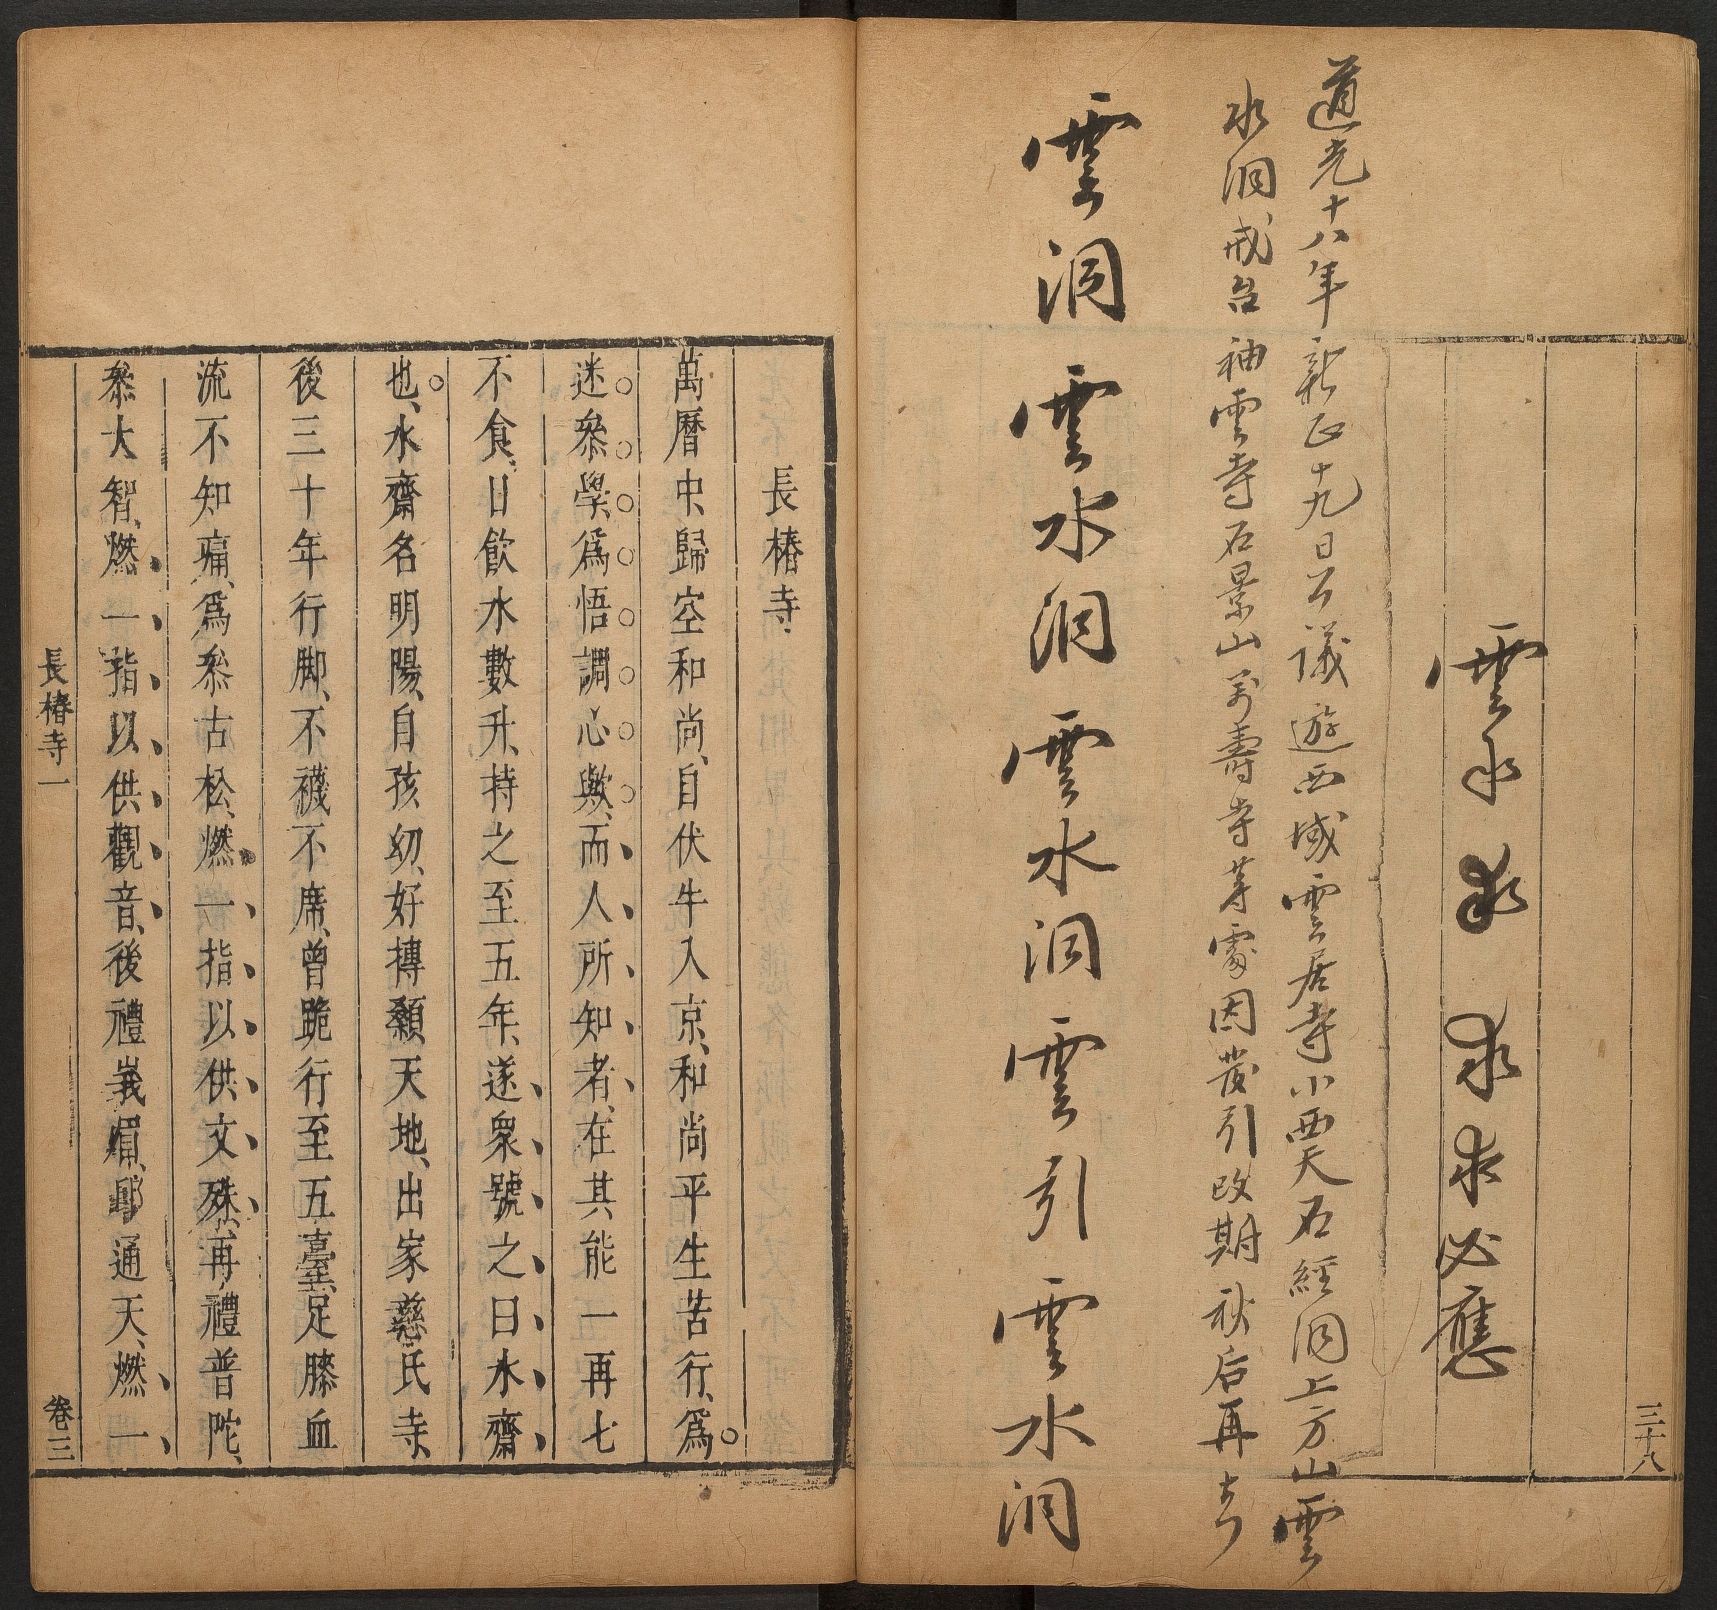 三十八
雲水求求求必應
道光十八年新正十九日公議遊西域雲居寺小西天石經洞上方山雲
水洞戒台岫雲寺石景山萬壽寺等處因發引改期秋后再去
雲洞雲水洞雲水洞雲引雲水洞
長椿寺
萬曆中、歸空和尚、自伏牛入京、和尚平生苦行、爲
迷叅學、爲悟調心歟、而人所知者、在其能一再七
不食、日飲水數升、持之至五年、遂衆號之曰水齋
也、水齋名明陽、自孩幼、好摶顙天地、出家慈氏寺、
後三十年行脚、不襪不席、曾跪行至五臺、足膝血
流不知痛、爲叅古松、燃一指以供文殊、再禮普陀、
叅大智、燃一指以供觀音、後禮峩嵋、郎通天、燃一
長椿寺一
卷三